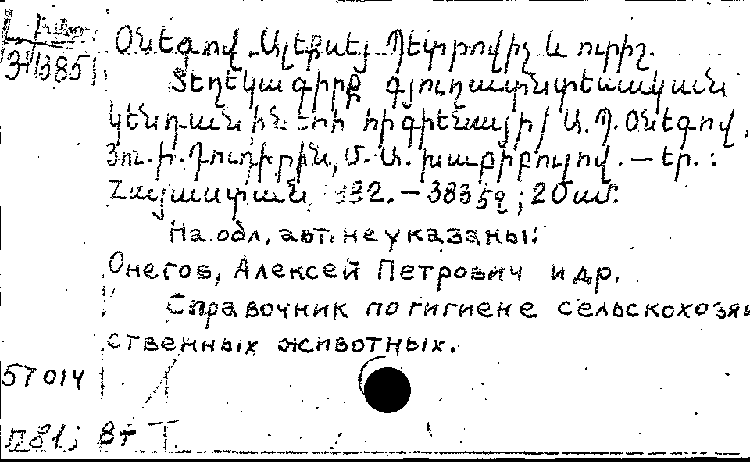 Э/1385
Օնեգով Ալեքսեյ Պետրովիչ և ուրիշ.
Տեղեկագիրք գյուղատնտեսական
կենդանիների հիգիենայի / Ա. Պ. Օնեգով,
Յու. Ի. Դուդիրին, Մ. Ս. խաբիբուլով. — Եր. :
Հայաստան, 982. — 383 էջ ; 20 սմ.
На обл. авт. не указаны.
Онегов, Алексей Петрович и др.
Справочник по гигиене сельскохозяй
ственных животных.
57 014
П81; 8+ Т.